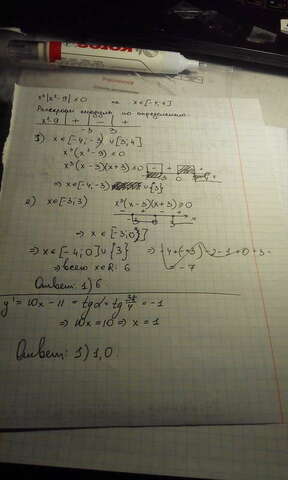 x³|x²-9| ≤ 0 на x∈[-4,4]
Раскроем модуль по определению:
x²-9 | + | - | +
-3 3
1) x∈[-4,-3) ∪ [3,4]
x³(x²-9) ≤ 0
x³(x-3)(x+3) ≤ 0
⇒ x∈[-4,-3) ∪{3}
2) x∈[-3;3) x³(x-3)(x+3) ≥ 0
⇒ x∈[-3,0]
⇒ x∈[-4,0]∪{3}
⇒ всего x∈ℝ: 6
-4+(-3)-2-1+0+3=
= -7
Ответ: 1) 6
y' = 10x - 11 = tgα = tg 3π/4 = -1
⇒ 10x = 10 ⇒ x = 1
Ответ: 1) 1,0.